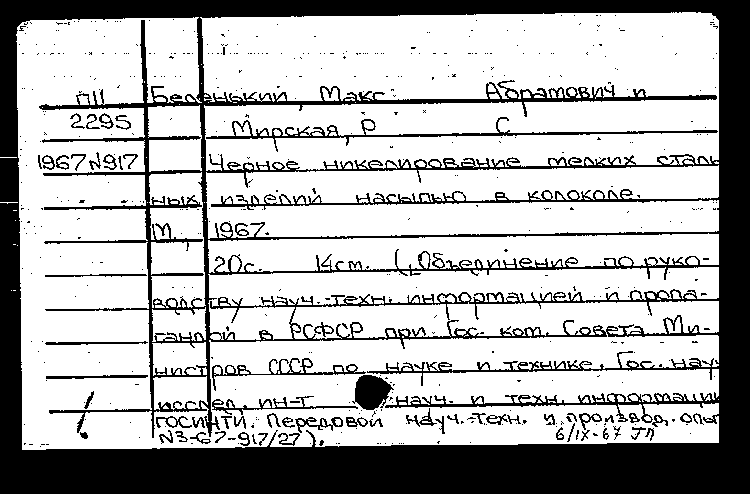 П11 Беленький, Макс Абрамович и
2295 Мирская, Р С
1967 N917 Черное никелирование мелких сталь
ных изделий насыпью в колоколе.
М., 1967.
20с. 14см. (Объединение по руко-
водству науч.-техн. информацией и пропа-
гандой в РСФСР при Гос. ком. Совета Ми-
нистров СССР по науке и технике. Гос. науч
исслед. ин-т науч. и техн. информации
ГОСИНТИ. Передовой науч.-техн. и производ. опыт
N3-67-917/27).
6/IX-67